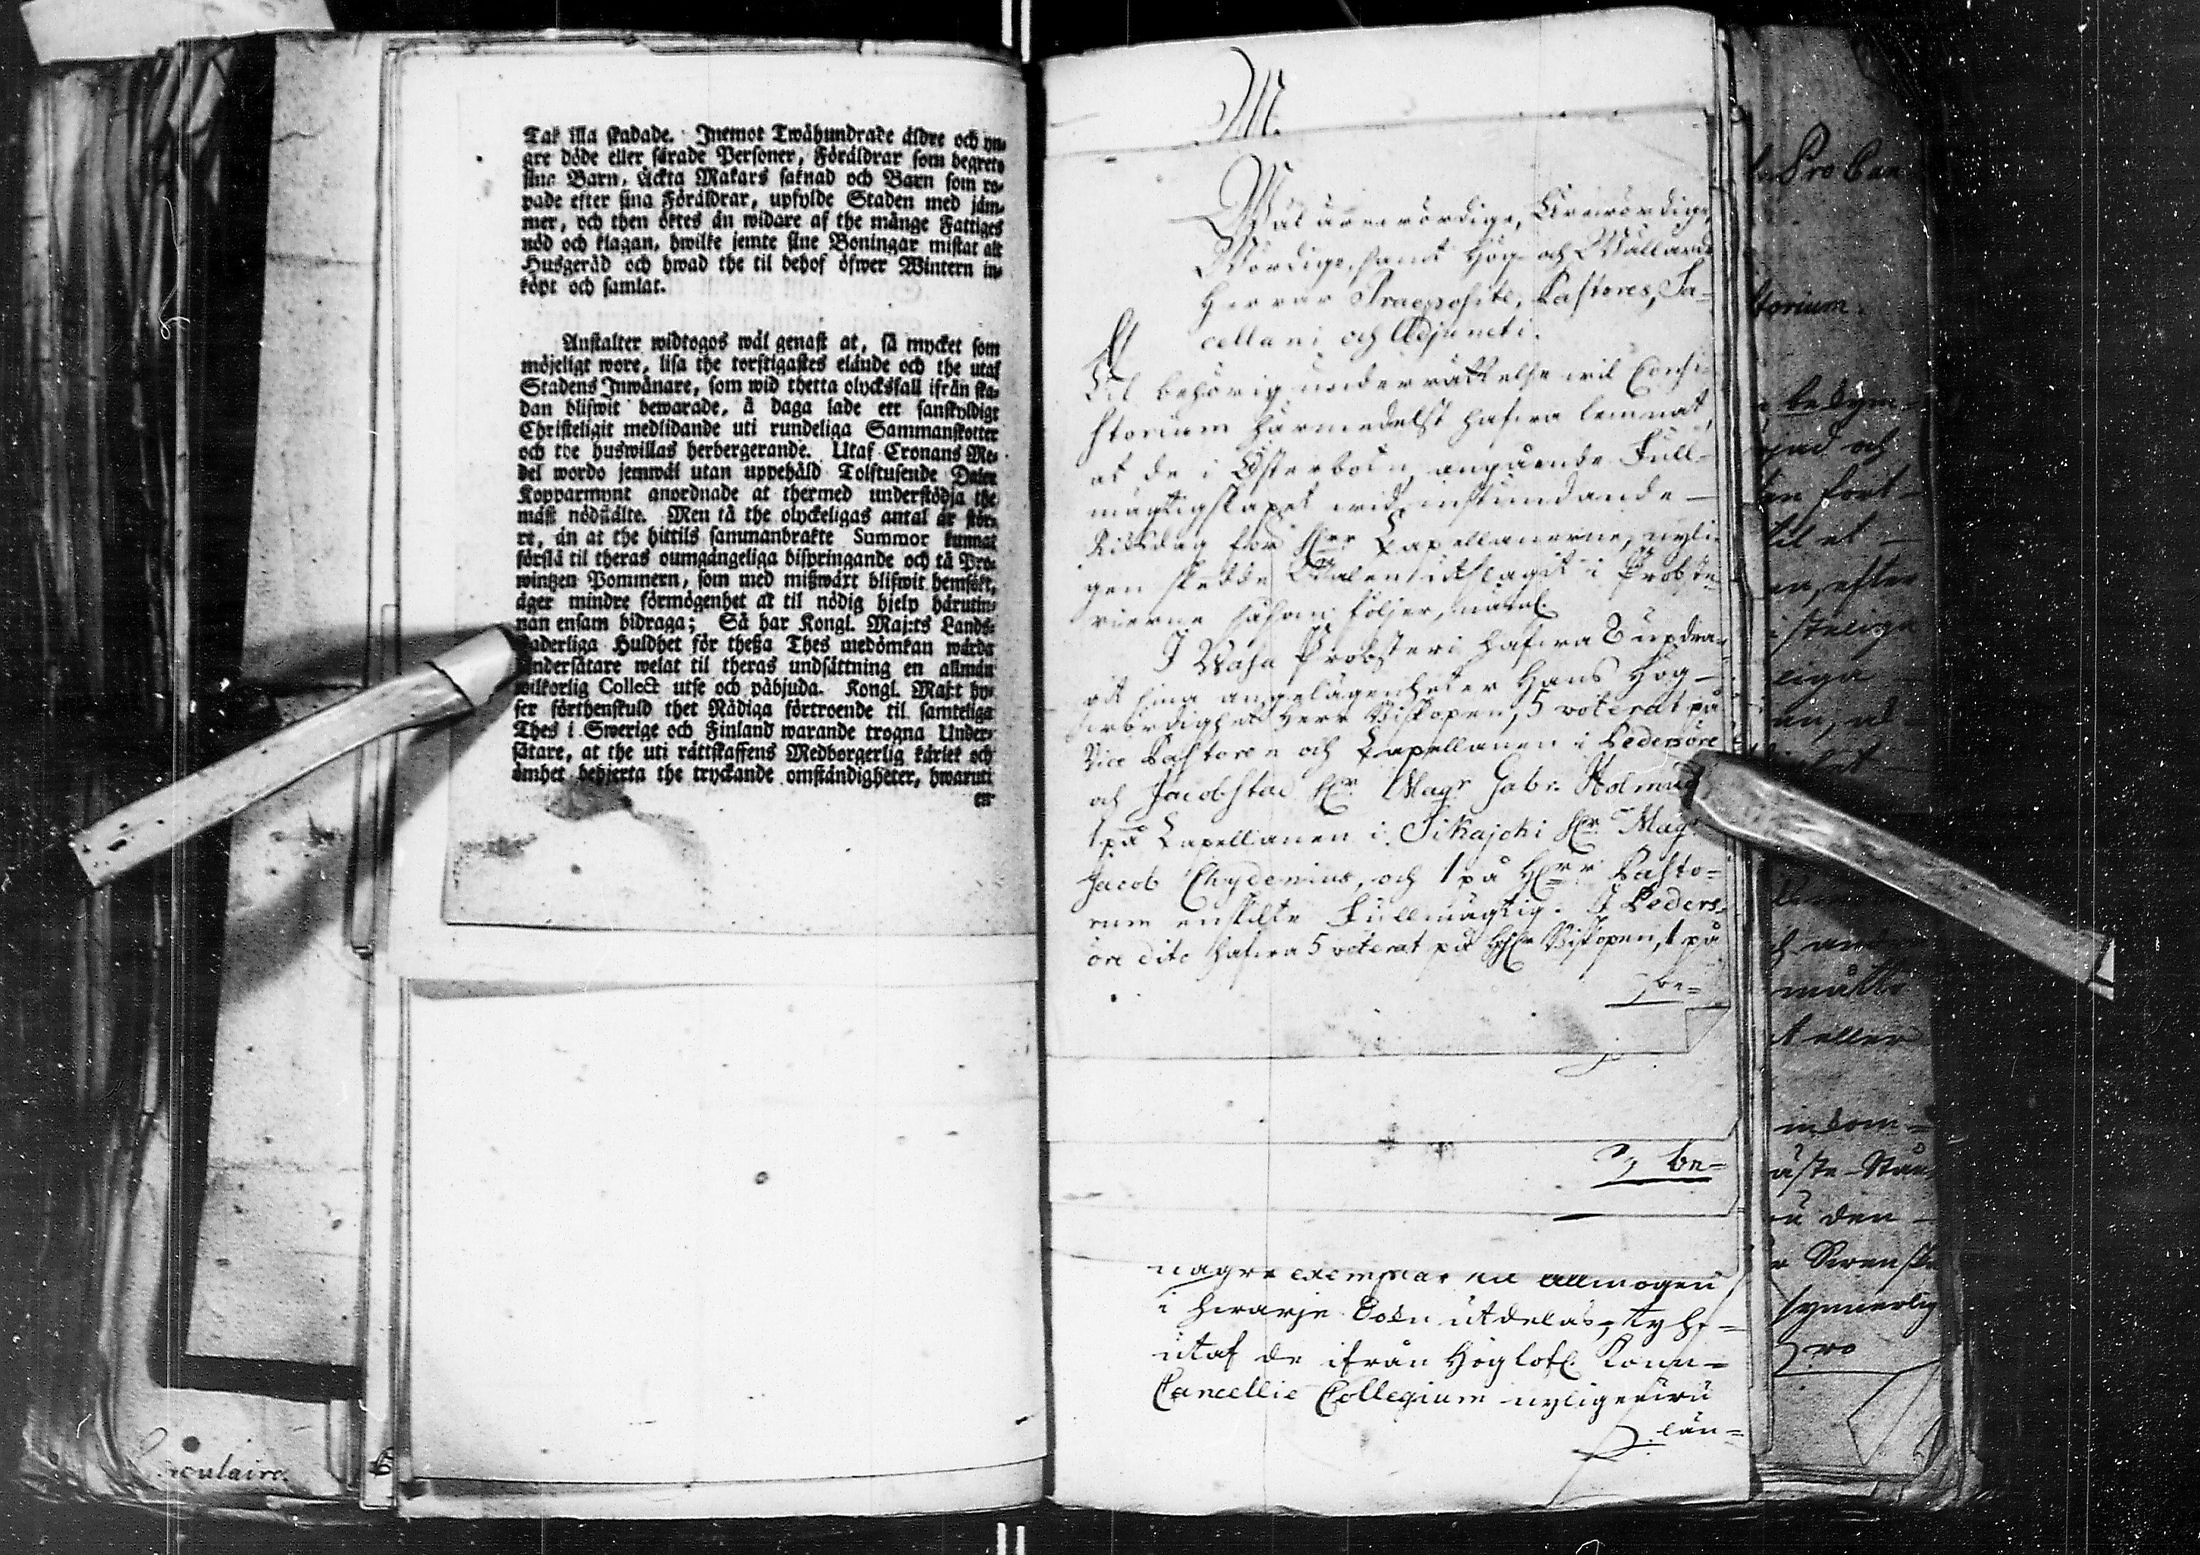 Tak illa skadade. Inemot Twåhundrade äldre och yn-
gre döde eller sårade Personer, Föräldrar som begreto
sina Barn, äckta Makars saknad och Barn som ro-
pade efter sina Föräldrar, upfylde Staden med jäm-
mer, och then öktes än widare af the månge Fattiges
nöd och klagan, hwilke jemte sine Boningar mistat alt
Husgeråd och hwad the til behof öfwer Wintern in-
köpt och samlat.
Anstalter widtogos wäl genast at, så mycket som
möjeligt wore, lisa the torftigastes elände och the utaf
Stadens Inwånare, som wid thetta olycksfall ifrån ska-
dan blifwit bewarade, å daga lade ett sanskyldigt
Christeligit medlidande uti rundeliga Sammanskotter
och the huswillas herbergerande. Utaf Cronans Me-
del wordo jemwäl utan uppehåld Tolftusende Daler
Kopparmynt anordnade at thermed understödja the
mäst nödstälte. Men tå the olyckeligas antal är stör-
re, än at the hittils sammanbrakte Summor kunnat
förslå til theras oumgängeliga bispringande och tå Pro-
wintzen Pommern, som med mißwäxt blifwit hemsökt,
äger mindre förmögenhet at til nödig hjelp härutin-
nan ensam bidraga; Så har Kongl. Maj:ts Lands-
faderliga Huldhet för theßa Thes medömkan wärda
Undersåtare welat til theras undsättning en allmän
wilkorlig Collect utse och påbjuda. Kongl. Maj:t hy-
ser förthenskuld thet Nådiga förtroende til samteliga
Thes i Swerige och Finland warande trogna Under-
såtare, at the uti rättskaffens Medborgerlig kärlek och
ömhet behjerta the tryckande omständigheter, hwaruti
en
M.
Wäl ärewördige, Ärewördige,
Wördige, samt Hög- och Wällärde
Herrar Praepositi, Pastores, Sa-
cellani och Adjuncti.
Til behörig underrättelse wil Consi-
storium härmedelst hafwa lemnat,
at de i Österbotn angående Full-
mägtigskapet wid instundande
Riksdag för Hrr Capellanerne, nyli-
gen skedde Walen utslagit i Probste-
rierne såsom följer, näml.
I Wasa Probsteri hafwa 8 updra-
git sina angelägenheter Hans Hög-
wördighet Herr Biskopen, 5 voterat på
Vice Pastoren och Capellanen i Pedersöre
och Jacobstad Hr Magr Gabr.
1 på Capellanen i Sikajoki Hr Magr
Jacob Chydenius, och 1 på Hrr Pasto-
rum enskilte Fullmägtig. I Peders-
öre dito hafwa 5 voterat på Hr Biskopen, 1 på
be-
be-
några exemplar til Allmogen
i hwarje Sokn utdelas, ty
utaf de ifrån Höglofl. Konn-
Cancellie Collegium nyligen
län-
Pro Can
storium.
bekym-
och
fört-
til et
en, efter
istelige
liga
en, al-
måtte
t eller
inkom-
äste Stån
den
Swenska
synnerlig
ro
culaire